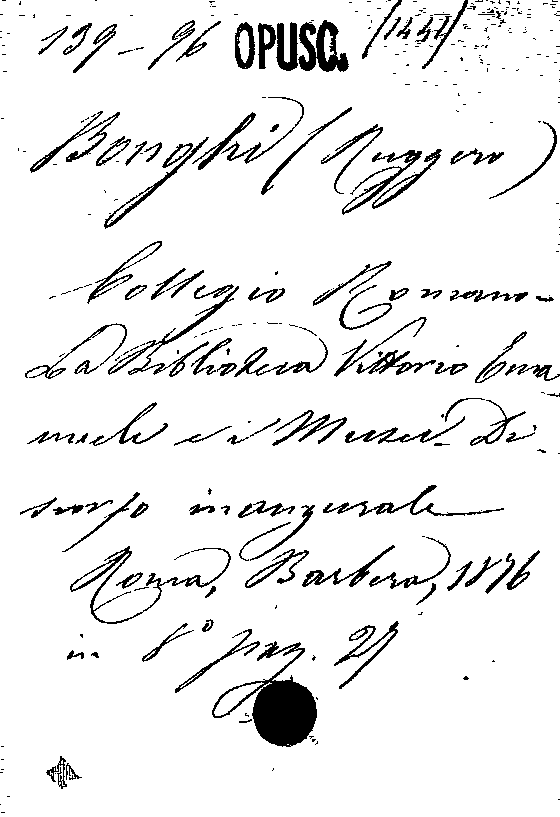 139-96 OPUSC. (1454)
Bonghi (Ruggero)
Collegio Romano-
La Biblioteca Vittorio Ema
nuele e i Musei- Di-
scorso inaugurale
Roma, Barbera, 1876
in 8° pag. 27